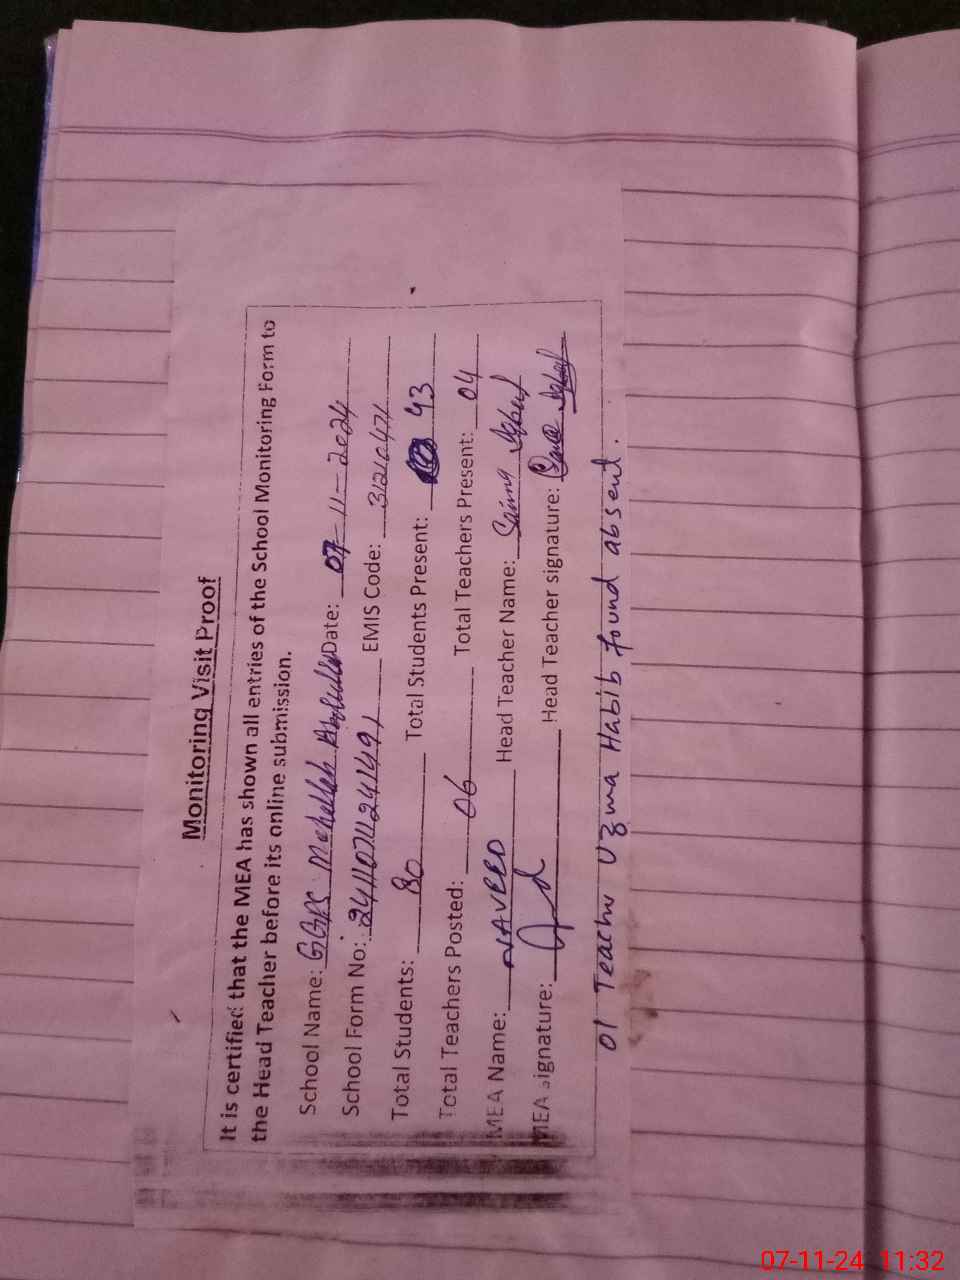 Monitoring Visit Proof
It is certified that the MEA has shown all entries of the School Monitoring Form to
the Head Teacher before its online submission.
School Name: GGPS Mohallah Abdulla Date: 07-11-2024
School Form No: 2411071124149 EMIS Code: 31210471
Total Students: 80 Total Students Present: 43
Total Teachers Posted: 06 Total Teachers Present: 04
MEA Name: NAVEED Head Teacher Name:
MEA signature: Head Teacher signature:
01 Teacher Uzma Habib found absent.
07-11-24 11:32